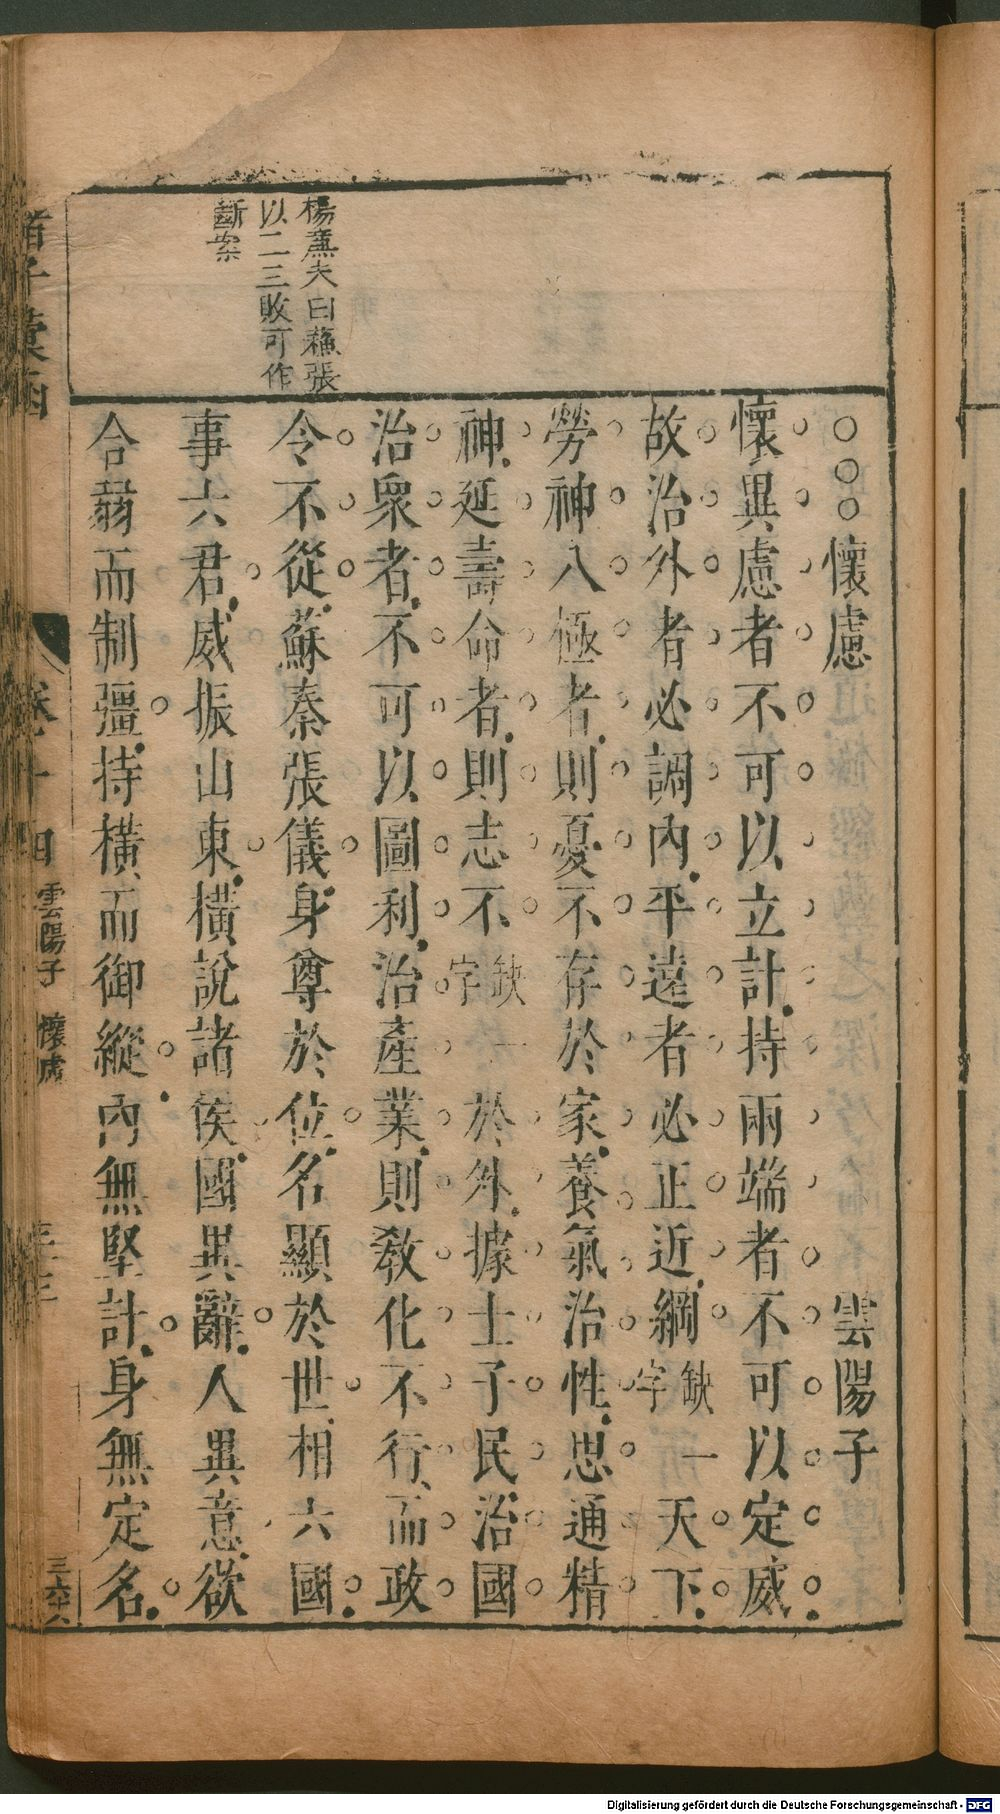 楊慮夫曰蘇張
以二三敗可作
斷案
○○○懷慮 雲陽子
懷異慮者不可以立計持兩端者不可以定威
故治外者必調內平遠者必正近綱缺一字天下
勞神八極者則憂不存於家養氣治性思通精
神延壽命者則志不缺一字於外據士子民治國
治衆者不可以圖利治產業則教化不行而政
令不從蘇秦張儀身尊於位名顯於世相六國
事六君威振山東橫說諸侯國異辭人異意欲
合弱而制彊持橫而御縱內無堅計身無定名
諸子彙函 卷十四 雲陽子 懷慮 三十三
Digitalisierung gefördert durch die Deutsche Forschungsgemeinschaft - DFG